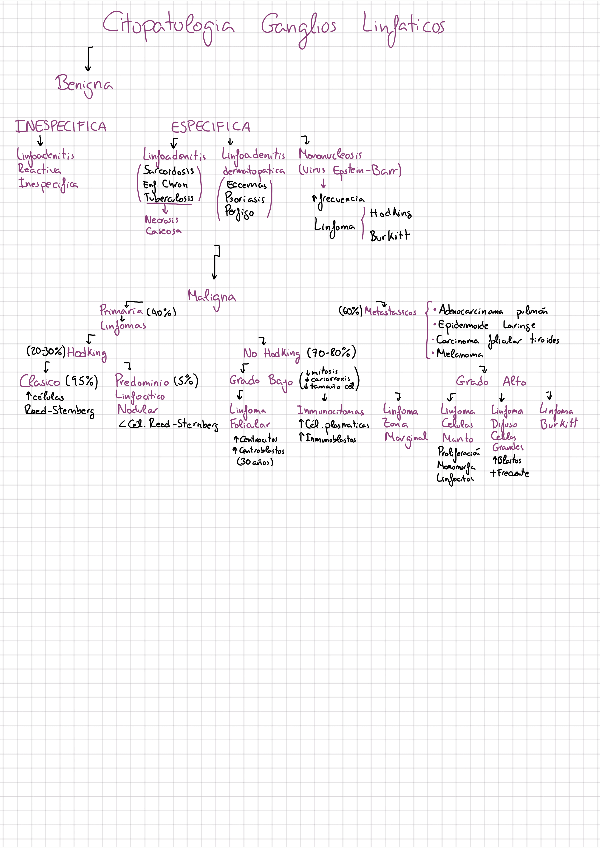 Citopatologia Ganglios Linfaticos
Benigna
INESPECIFICA
Linfoadenitis
Reactiva
Inespecifica
ESPECIFICA
Linfoadenitis
Sarcoidosis
Enf Chron
Tuberculosis
Necrosis
Caseosa
Linfoadenitis
dermatopatica
Eccemas
Psoriasis
Penfigo
Mononucleosis
(Virus Epstem-Barr)
↑ frecuencia
Linfoma
Hodking
Burkitt
Maligna
Primaria (40%)
Linfomas
(60%) Metastasicos
• Adenocarcinoma pulmón
• Epidermoide Laringe
• Carcinoma folicular tiroides
• Melanoma
(20-30%) Hodking
Clasico (95%)
↑ células
Reed-Sternberg
Predominio (5%)
Linfocitico
Nodular
< Cel. Reed-Sternberg
No Hodking (70-80%)
Grado Bajo
↓ mitosis
↓ cariorrexis
↓ tamaño cel
Linfoma
Folicular
↑ Centrocitos
↑ Centroblastos
(30 años)
Inmunocitomas
↑ Cél. plasmaticas
↑ Inmunoblastos
Linfoma
Zona
Marginal
Grado Alto
Linfoma
Celulas
Manto
Proliferación
Monomorfa
Linfocitos
Linfoma
Difuso
Cellas
Grandes
↑ Blastos
+ Frecuente
Linfoma
Burkitt